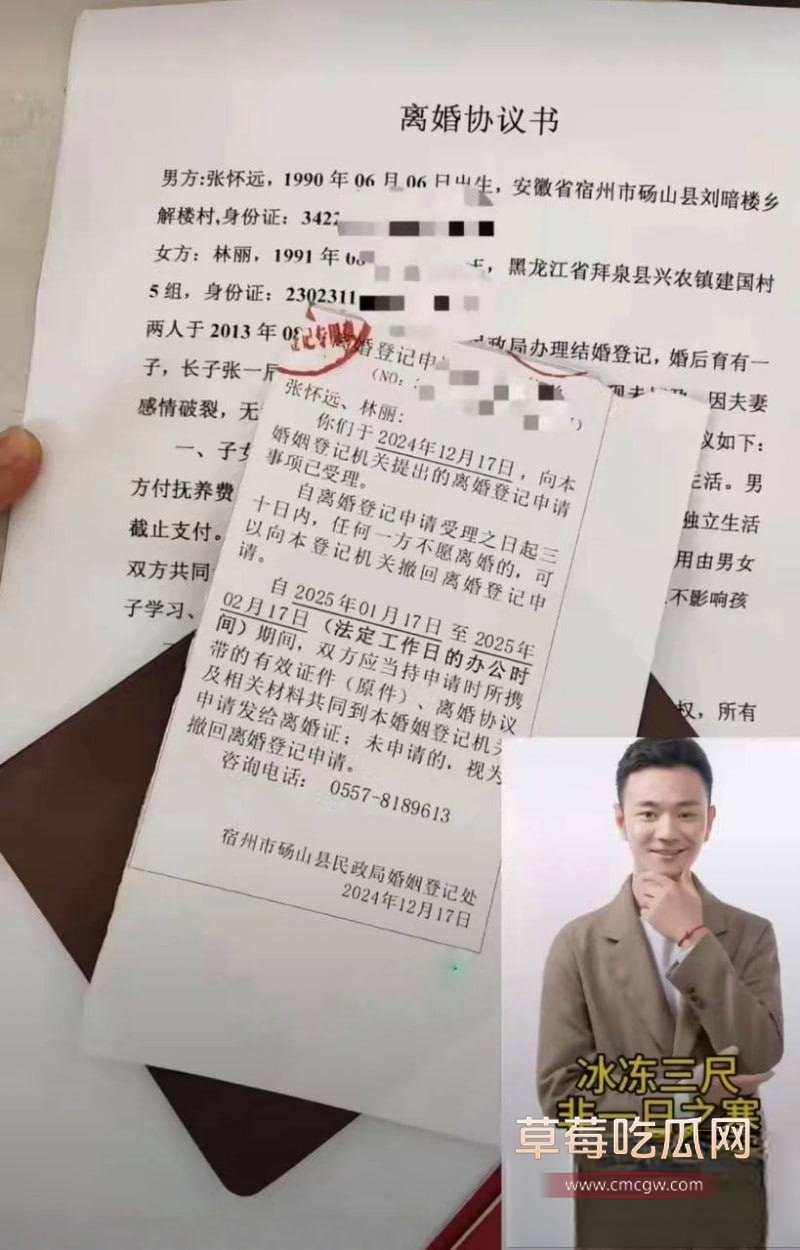 离婚协议书
男方:张怀远，1990年06月06日出生，安徽省宿州市砀山县刘暗楼乡
解楼村,身份证：3422
女方：林丽，1991年08 ，黑龙江省拜泉县兴农镇建国村
5组，身份证：2302311
两人于2013年08 政局办理结婚登记，婚后育有一
子，长子张一 因夫妻
感情破裂，无 议如下：
一、子女 生活。男
方付抚养费 独立生活
截止支付。 用由男女
双方共同 不影响孩
子学习、
权，所有
记专用章
离婚登记申
（NO:
张怀远、林丽：
你们于2024年12月17日，向本
婚姻登记机关提出的离婚登记申请
事项已受理。
自离婚登记申请受理之日起三
十日内，任何一方不愿离婚的，可
以向本登记机关撤回离婚登记申
请。
自2025年01月17日至2025年
02月17日（法定工作日的办公时
间）期间，双方应当持申请时所携
带的有效证件（原件）、离婚协议
及相关材料共同到本婚姻登记机关
申请发给离婚证；未申请的，视为
撤回离婚登记申请。
咨询电话： 0557-8189613
宿州市砀山县民政局婚姻登记处
2024年12月17日
冰冻三尺
非一日之寒
草莓吃瓜网
www.cmcgw.com